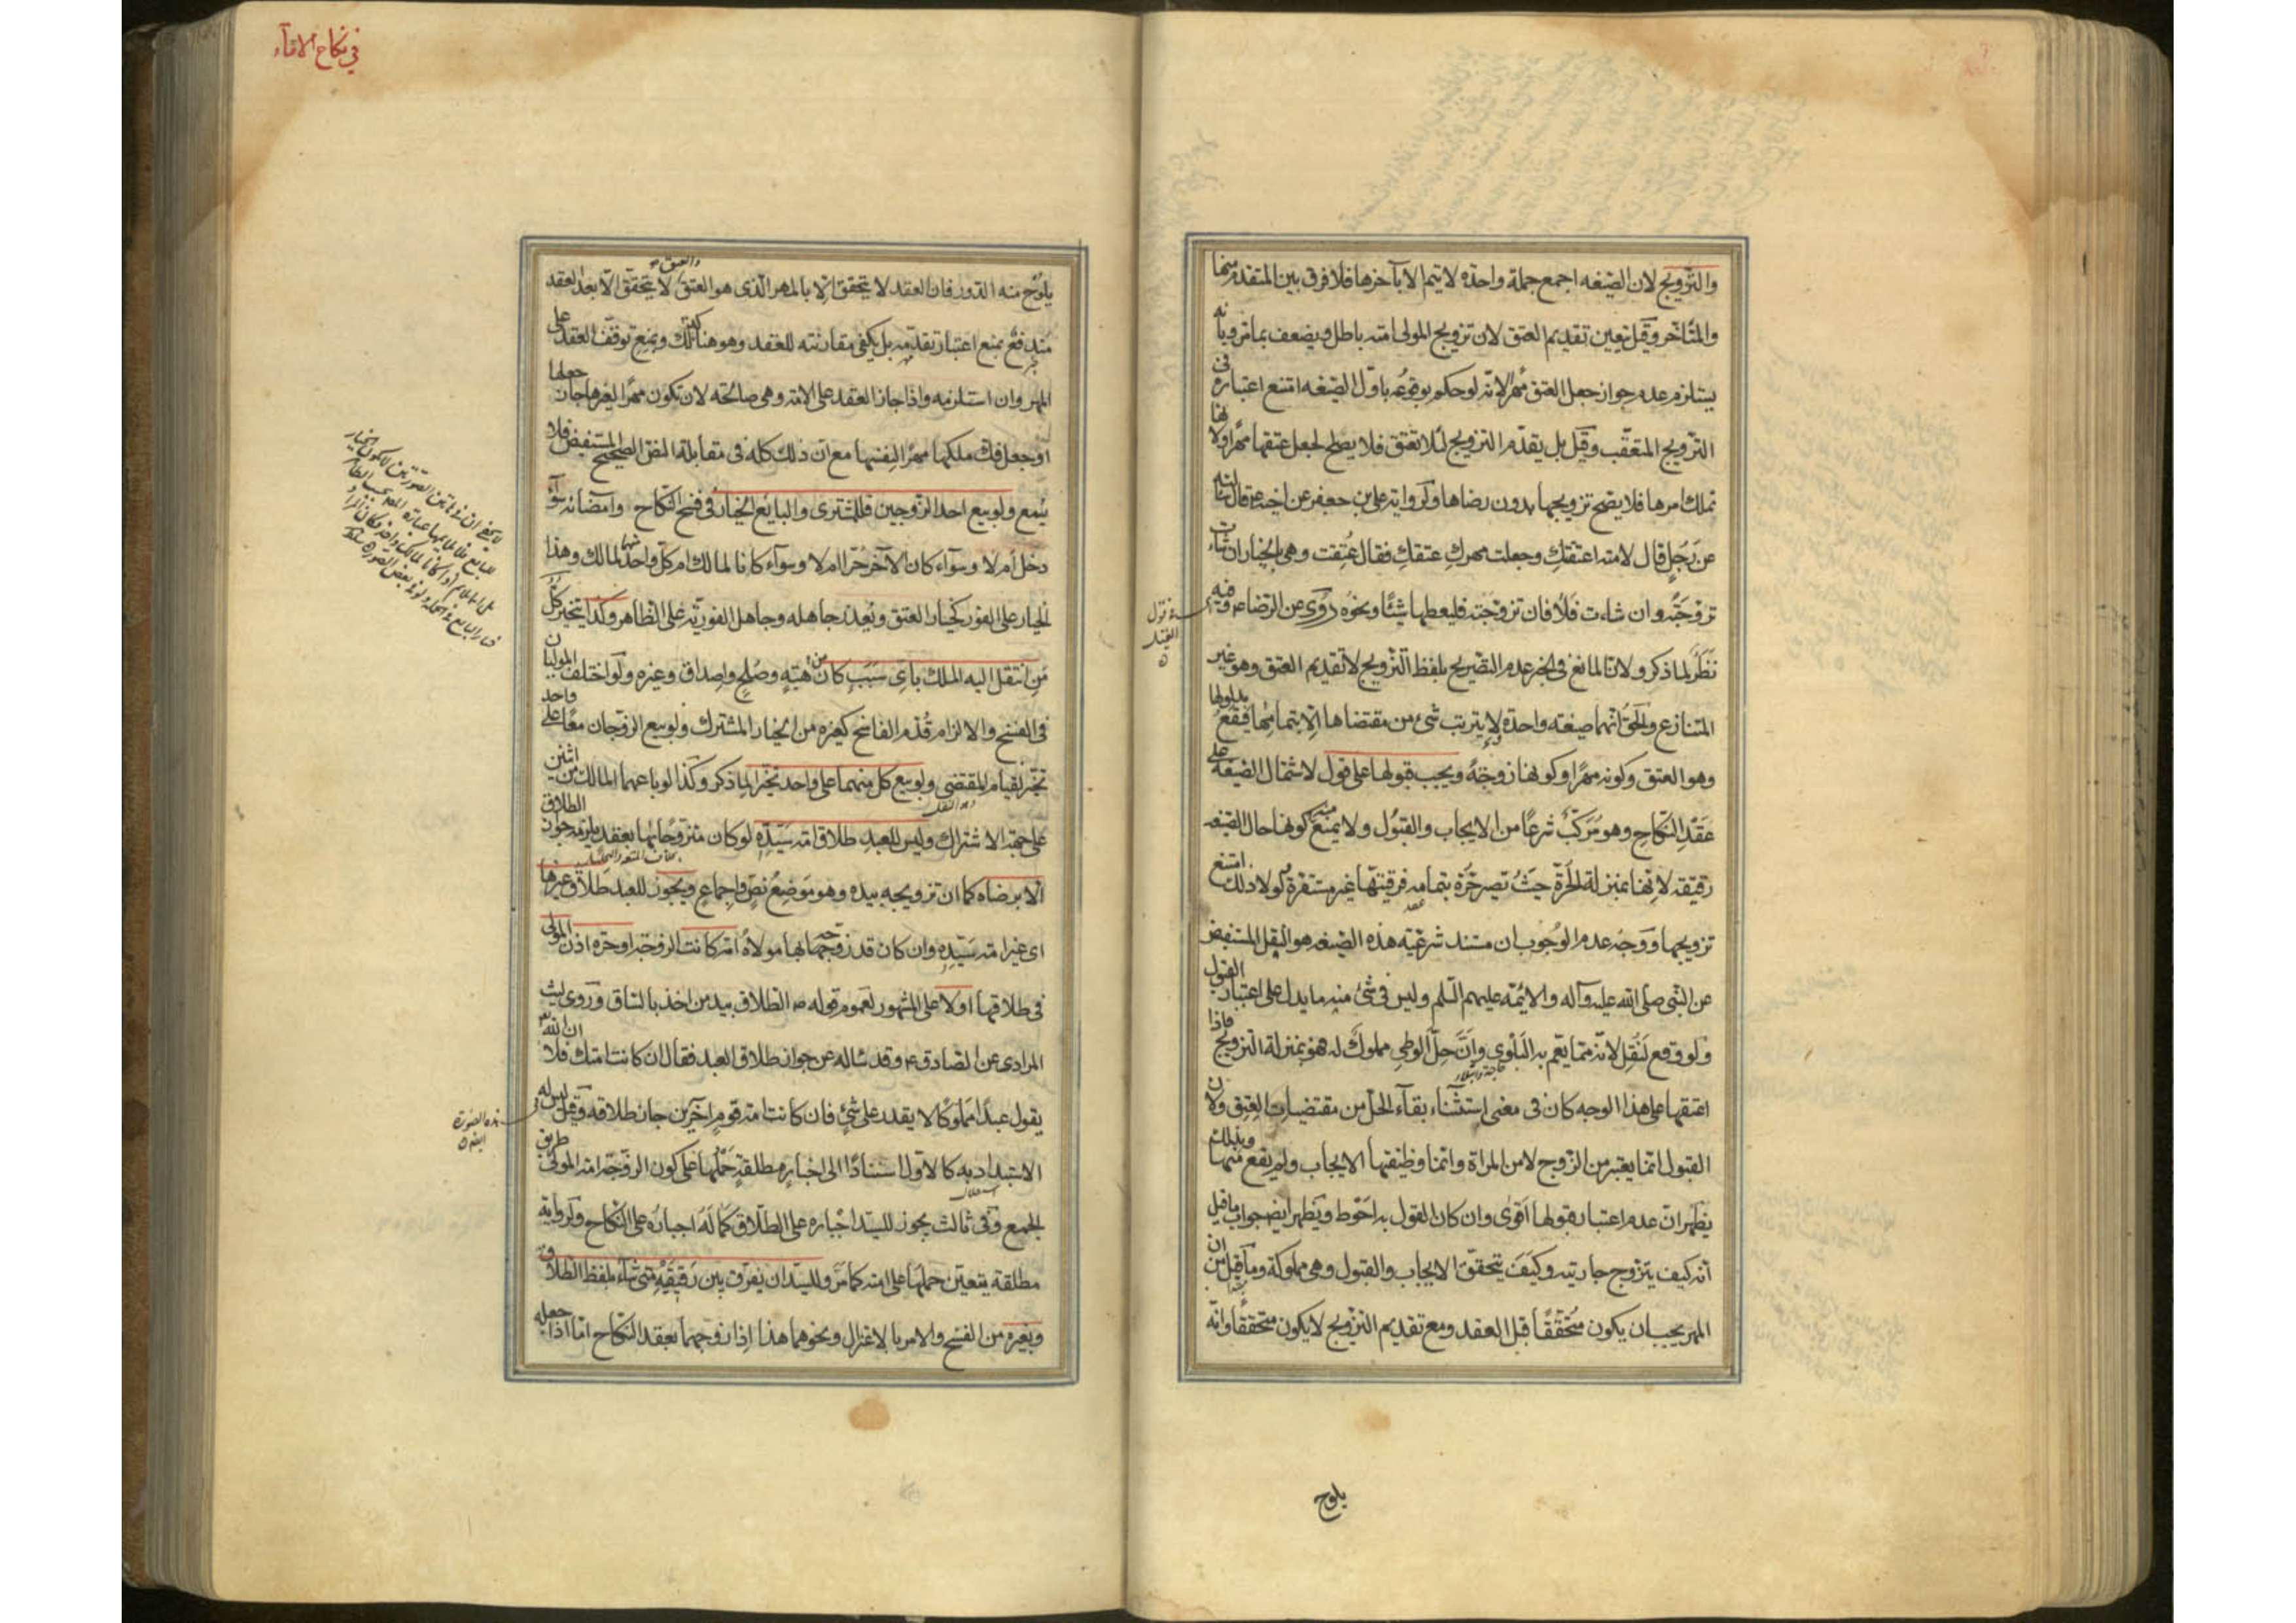 والتزويج لان الصيغه اجمع جملة واحدة لا يتم الا بآخرها فلا فرق بين المتقدم منها
والمتاخر وقيل يتعين تقديم العتق لان تزويج المولى امته باطل ويضعف بما مر وبانه
يستلزم عدم جواز جعل العتق مهرًا لانه لو حكم بوقوعه باول الصيغه امتنع اعتباره في
التزويج المتعقب وقيل بل يقدم التزويج لئلا تعتق فلا يصلح لجعل عتقها مهرًا ولانها
تملك امرها فلا يصح تزويجها بدون رضاها ولرواية علي بن جعفر عن اخيه ع قال سالته
عن رجل قال لامته اعتقتك وجعلت مهرك عتقك فقال عتقت وهي بالخيار ان شاءت
تزوجته وان شاءت فلا فان تزوجته فليعطها شيئًا ونحوه روى عن الرضا ع وفيه
نظر لما ذكر ولان المانع في الخبر عدم التصريح بلفظ التزويج لا تقديم العتق وهو غير
المتنازع والحق انهما صيغه واحدة لا يترتب شئ من مقتضاها الا بتمامها فيقع مدلولها
وهو العتق وكونه مهرًا وكونها زوجة ويجب قبولها على قول لاشتمال الصيغة على
عقد النكاح وهو مركب شرعًا من الايجاب والقبول ولا يمنع منه كونها حال الصيغه
رقيقه لانها بمنزلة الحرة حيث تصير حرة بتمامه فرقيتها غير مستقرة ولولا ذلك امتنع
تزويجها ووجه عدم الوجوب ان مستند شرعية هذه الصيغه هو النقل المستفيض
عن النبي صلى الله عليه وآله والائمه عليهم السلم وليس في شئ منه ما يدل على اعتبار القبول
ولو وقع لنقل لانه مما يعم به البلوى وان حل الوطي مملوك له فهو بمنزلة التزويج فاذا
اعتقها على هذا الوجه كان في معنى استثناء بقاء الحل من مقتضيات العتق ولان
القبول انما يعتبر من الزوج لا من المراة وانما وظيفتها الايجاب ولم يقع منها وبذلك
يظهر ان عدم اعتبار قبولها اقوى وان كان القول به احوط ويظهر ايضا جواب ما قيل
انه كيف يتزوج جاريته وكيف يتحقق الايجاب والقبول وهي مملوكة وما قيل من ان
المهر يجب ان يكون متحققًا قبل العقد ومع تقديم التزويج لا يكون متحققًا وانه
يلوح
في نكاح الاماء
يلوح منه الدور فان العقد لا يتحقق الا بالمهر الذي هو العتق والعتق لا يتحقق الا بعد العقد
مندفع بمنع اعتبار تقدمه بل يكفي مقارنته للعقد وهو هنا كذلك وبمنع توقف العقد على
المهر وان استلزمه واذا جاز العقد على الامة وهي صالحة لان تكون مهرًا لغيرها جاز جعلها
او جعل فك ملكها مهرًا لنفسها مع ان ذلك كله في مقابلة النص الصحيح المستفيض فلا
يسمع ولو بيع احد الزوجين فللمشتري والبايع الخيار في فسخ النكاح وامضائه سواء
دخل ام لا وسواء كان الآخر حرًا ام لا وسواء كانا لمالك ام كل واحد منهما لمالك وهذا
الخيار على الفور كخيار العتق ويعذر جاهله وجاهل الفورية على الظاهر وكذا يتخير كل
من انتقل اليه الملك باي سبب كان من هبة وصلح واصداق وغيره ولو اختلف الموليان
في الفسخ والالزام قدم الفاسخ كغيره من الخيار المشترك ولو بيع الزوجان معًا على واحد
تخير لقيام المقتضي ولو بيع كل منهما على واحد تخيرا لما ذكر وكذا لو باعهما المالك من اثنين
على جهة الاشتراك وليس للعبد طلاق امة سيده لو كان متزوجًا بها بعقد يلزمه جواز الطلاق
الا برضاه كما ان تزويجه بيده وهو موضع نص واجماع ويجوز للعبد طلاق غيرها
اي غير امة سيده وان كان قد زوجه بها مولاه امة كانت الزوجة او حرة اذن المولى
في طلاقها اولا على المشهور لعموم قوله ص الطلاق بيد من اخذ بالساق وروى ليث
المرادي عن الصادق ع وقد ساله عن جواز طلاق العبد فقال ان كانت امتك فلا ان الله
يقول عبدًا مملوكًا لا يقدر على شئ وان كانت امة قوم آخرين جاز طلاقه وقيل ليس له
الاستبداد به كالاول استنادًا الى اخبار مطلقة حملها على كون الزوجة امة المولى طريق
الجمع وفي ثالث يجوز للسيد اجباره على الطلاق كما له اجباره على النكاح ولرواية
مطلقة يتعين حملها على امته كما مر وللسيد ان يفرق بين رقيقيه متى شاء بلفظ الطلاق
وبغيره من الفسخ والامر بالاعتزال ونحوهما هذا اذا زوجهما بعقد النكاح اما اذا جعله